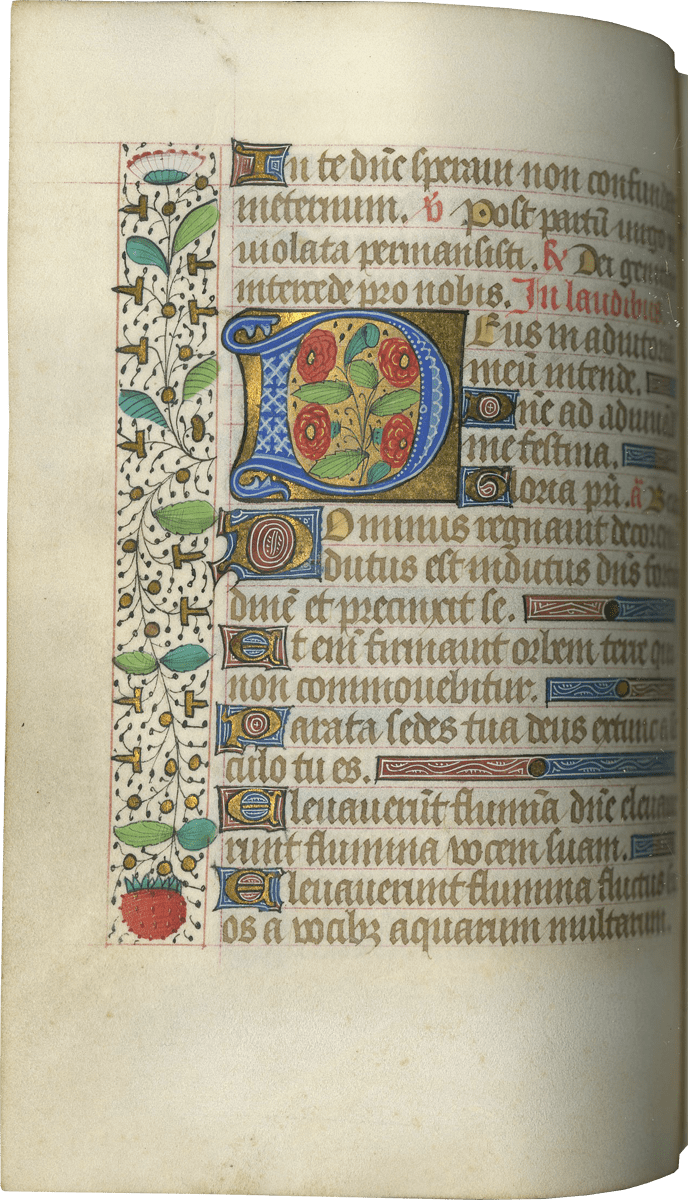 In te dn̄e speraui non confund
ineternum. v̄ Post partū uirgo
uiolata permansisti. R Dei geni
intercede pro nobis. In laudibus
Deus in adiutori
meū intende.
Dn̄e ad adiuuā
me festina.
Gloria pr̄i. ā
Dominus regnauit decorem
dutus est indutus dn̄s forti
dinē et precinxit se.
Et enī firmauit orbem terre qui
non commouebitur.
Parata sedes tua deus extunc a
culo tu es.
Eleuauerūt flumīa dn̄e eleuaue
runt flumina vocem suam.
Eleuauerunt flumina fluctus
os a vocibꝫ aquarum multarum.